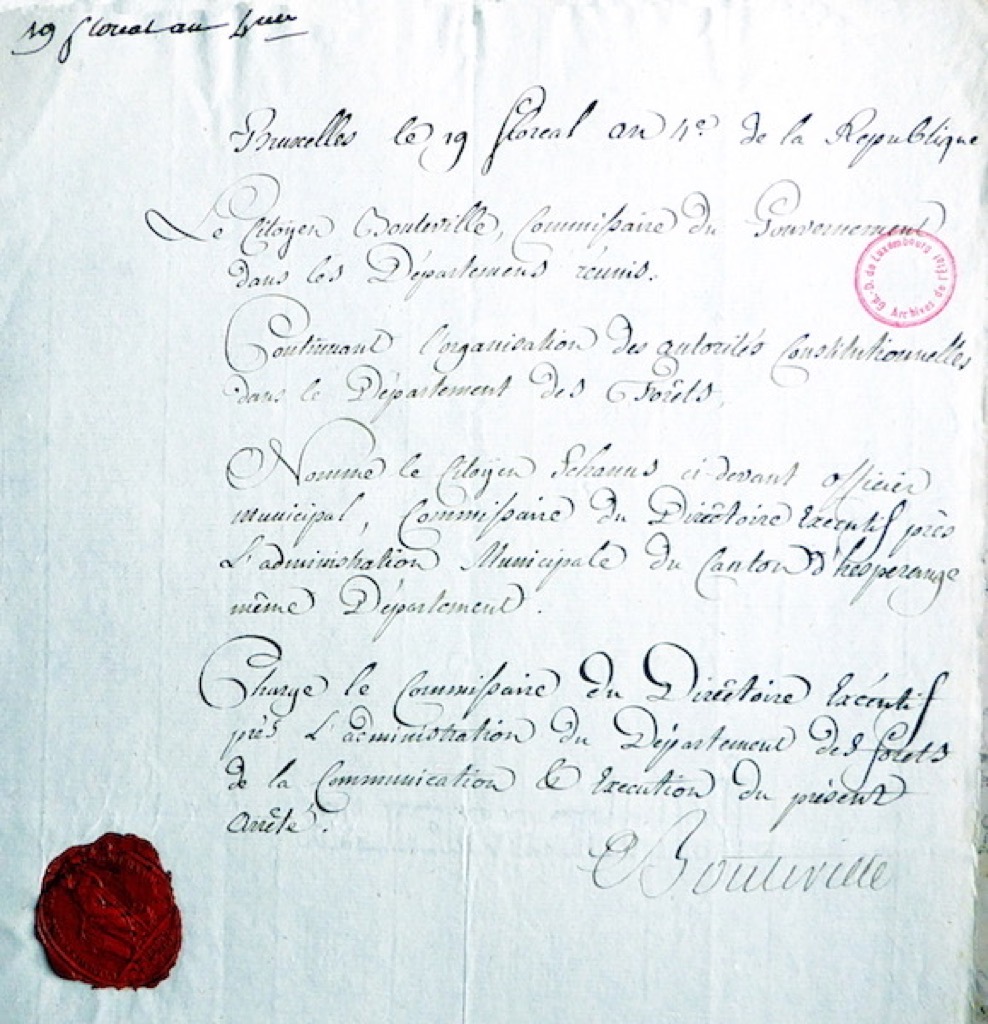 19 floreal an 4me
Bruxelles le 19 floreal an 4e de la Republique
Le Citoyen Bouteville, Commissaire du Gouvernement
dans les Départemens réunis.
Gd.-D. de Luxembourg Archives de l'Etat
Continuant l'organisation des autorités Constitutionnelles
dans le Département des Forêts,
Nomme le Citoyen Schanus ci-devant officier
municipal, Commissaire du Directoire Executif près
L'administration Municipale du Canton d'hesperange
même Département.
Charge le Commissaire du Directoire Exécutif
près L'administration du Département des forets
de la Communication & Execution du présent
arrêté.
Bouteville